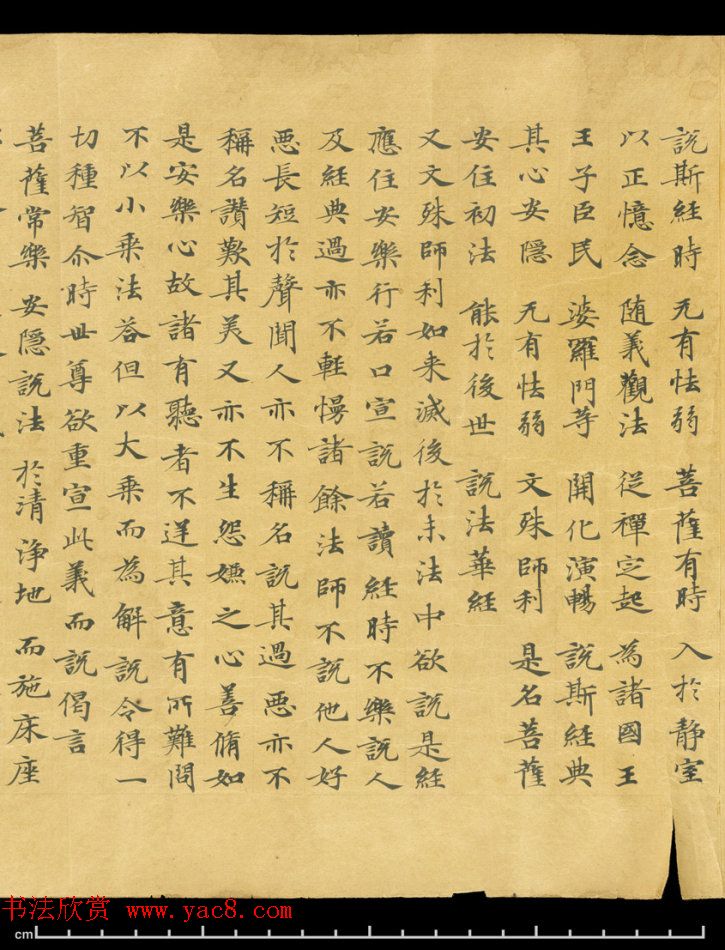 説斯経時 无有怯弱 菩薩有時 入於静室
以正憶念 随義觀法 従禪㝎起 為諸國王
王子臣民 婆羅門等 開化演暢 説斯経典
其心安隠 无有怯弱 文殊師利 是名菩薩
安住初法 能於後世 説法華経
又文殊師利如来滅後於末法中欲説是経
應住安樂行若口宣説若讀経時不樂説人
及経典過亦不軽慢諸餘法師不説他人好
惡長短於聲聞人亦不稱名説其過惡亦不
稱名讃歎其美又亦不生怨嫌之心善脩如
是安樂心故諸有聽者不逆其意有所難問
不以小乗法荅但以大乗而為解説令得一
切種智尒時世尊欲重宣此義而説偈言
菩薩常樂 安隠説法 於清浄地 而施床座
书法欣赏 www.yac8.com
cm